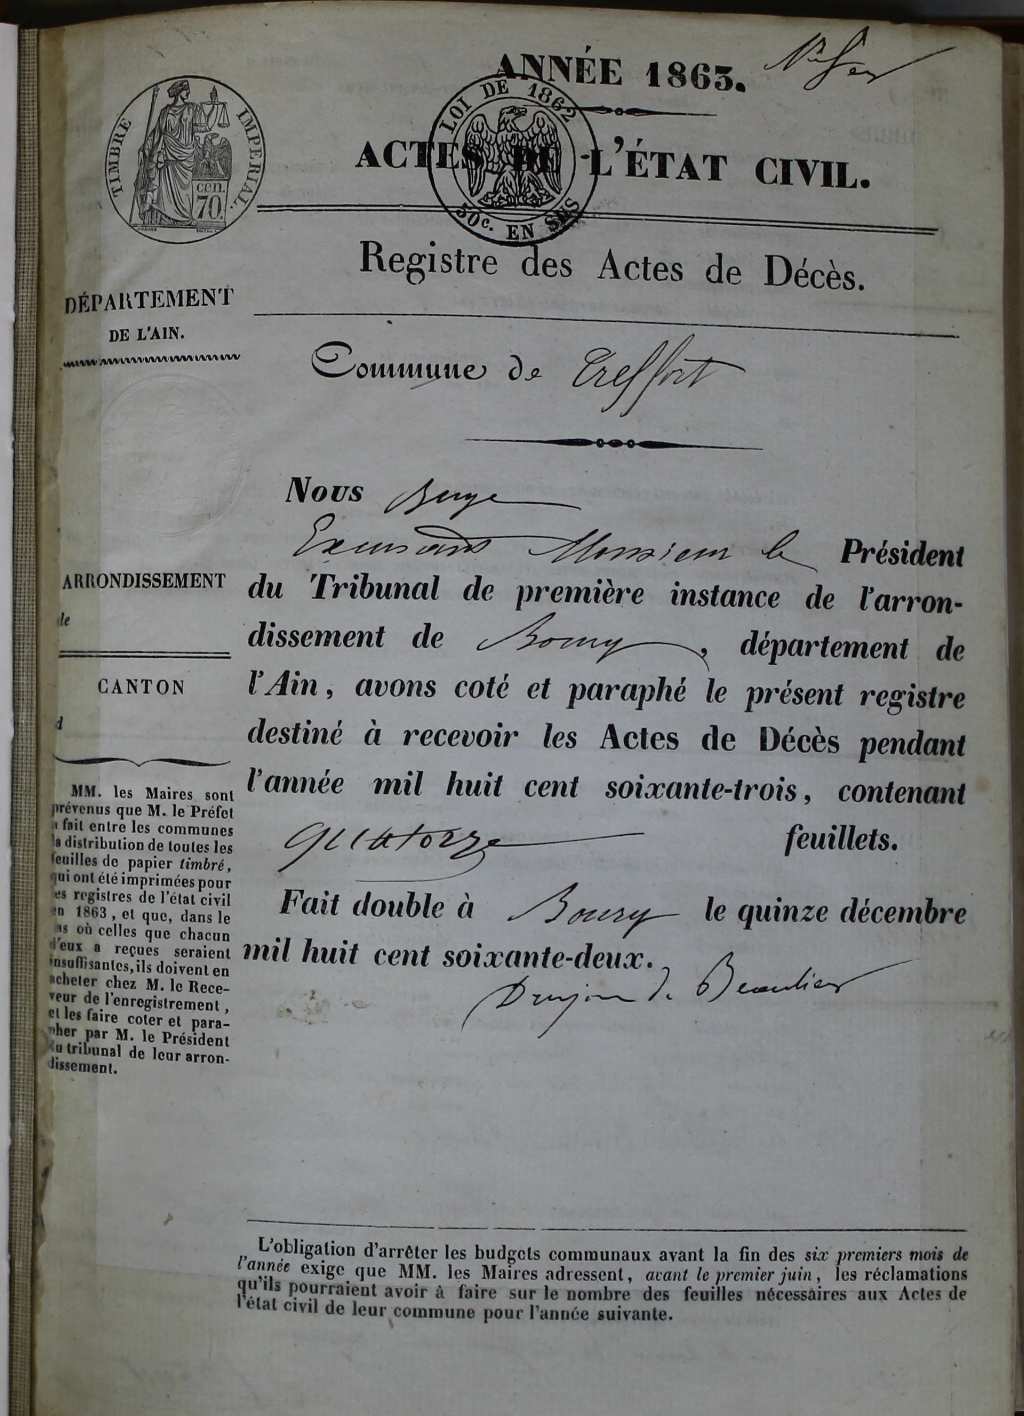 ANNÉE 1863.
TIMBRE IMPÉRIAL.
cen.
70.
LOI DE 1862
50c. EN SUS
ACTES DE L'ÉTAT CIVIL.
Registre des Actes de Décès.
DÉPARTEMENT
DE L'AIN.
Commune de Treffort
Nous
Monsieur le Président
du Tribunal de première instance de l'arron-
dissement de Bourg, département de
l'Ain, avons coté et paraphé le présent registre
destiné à recevoir les Actes de Décès pendant
l'année mil huit cent soixante-trois, contenant
quatorze feuillets.
Fait double à Bourg le quinze décembre
mil huit cent soixante-deux.
Drujon de Beaulieu
ARRONDISSEMENT
de
CANTON
d
MM. les Maires sont
prévenus que M. le Préfet
a fait entre les communes
la distribution de toutes les
feuilles de papier timbré,
qui ont été imprimées pour
les registres de l'état civil
en 1863, et que, dans le
cas où celles que chacun
d'eux a reçues seraient
insuffisantes, ils doivent en
acheter chez M. le Rece-
veur de l'enregistrement,
et les faire coter et para-
pher par M. le Président
du tribunal de leur arron-
dissement.
L'obligation d'arrêter les budgets communaux avant la fin des six premiers mois de
l'année exige que MM. les Maires adressent, avant le premier juin, les réclamations
qu'ils pourraient avoir à faire sur le nombre des feuilles nécessaires aux Actes de
l'état civil de leur commune pour l'année suivante.